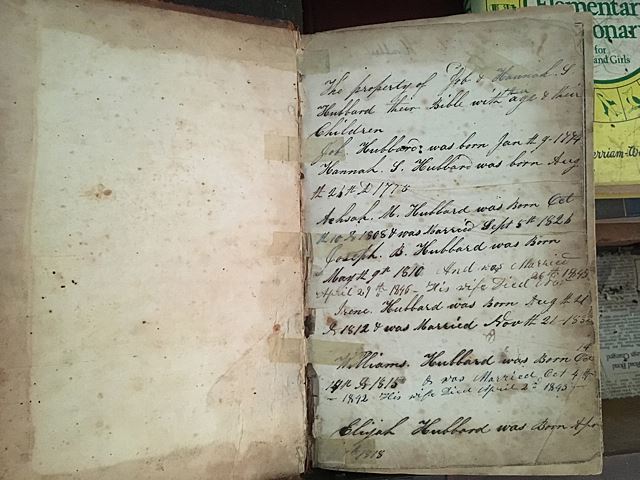 The property of Job & Hannah. S.
Hubbard their Bible with their age & their
Children
Job. Hubbard, was born Jan th 9-1774
Hannah. S. Hubbard was born Aug
th 2d 1775
Achsah. M. Hubbard was Born Oct
th 10 1808 & was Married Sept 5th 1826
Joseph. B. Hubbard was Born
May th 9th 1810 And was Married
April 29th 1840 - His wife Died 1845
Irene. Hubbard was Born Aug th 21
& 1812 & was Married Nov th 21
Williams. Hubbard was Born Oct
1815 & was Married Oct 4th
- 1842 His wife Died April 2d 1845 -
Elijah Hubbard was Born
1818
Elementary
for
and Girls